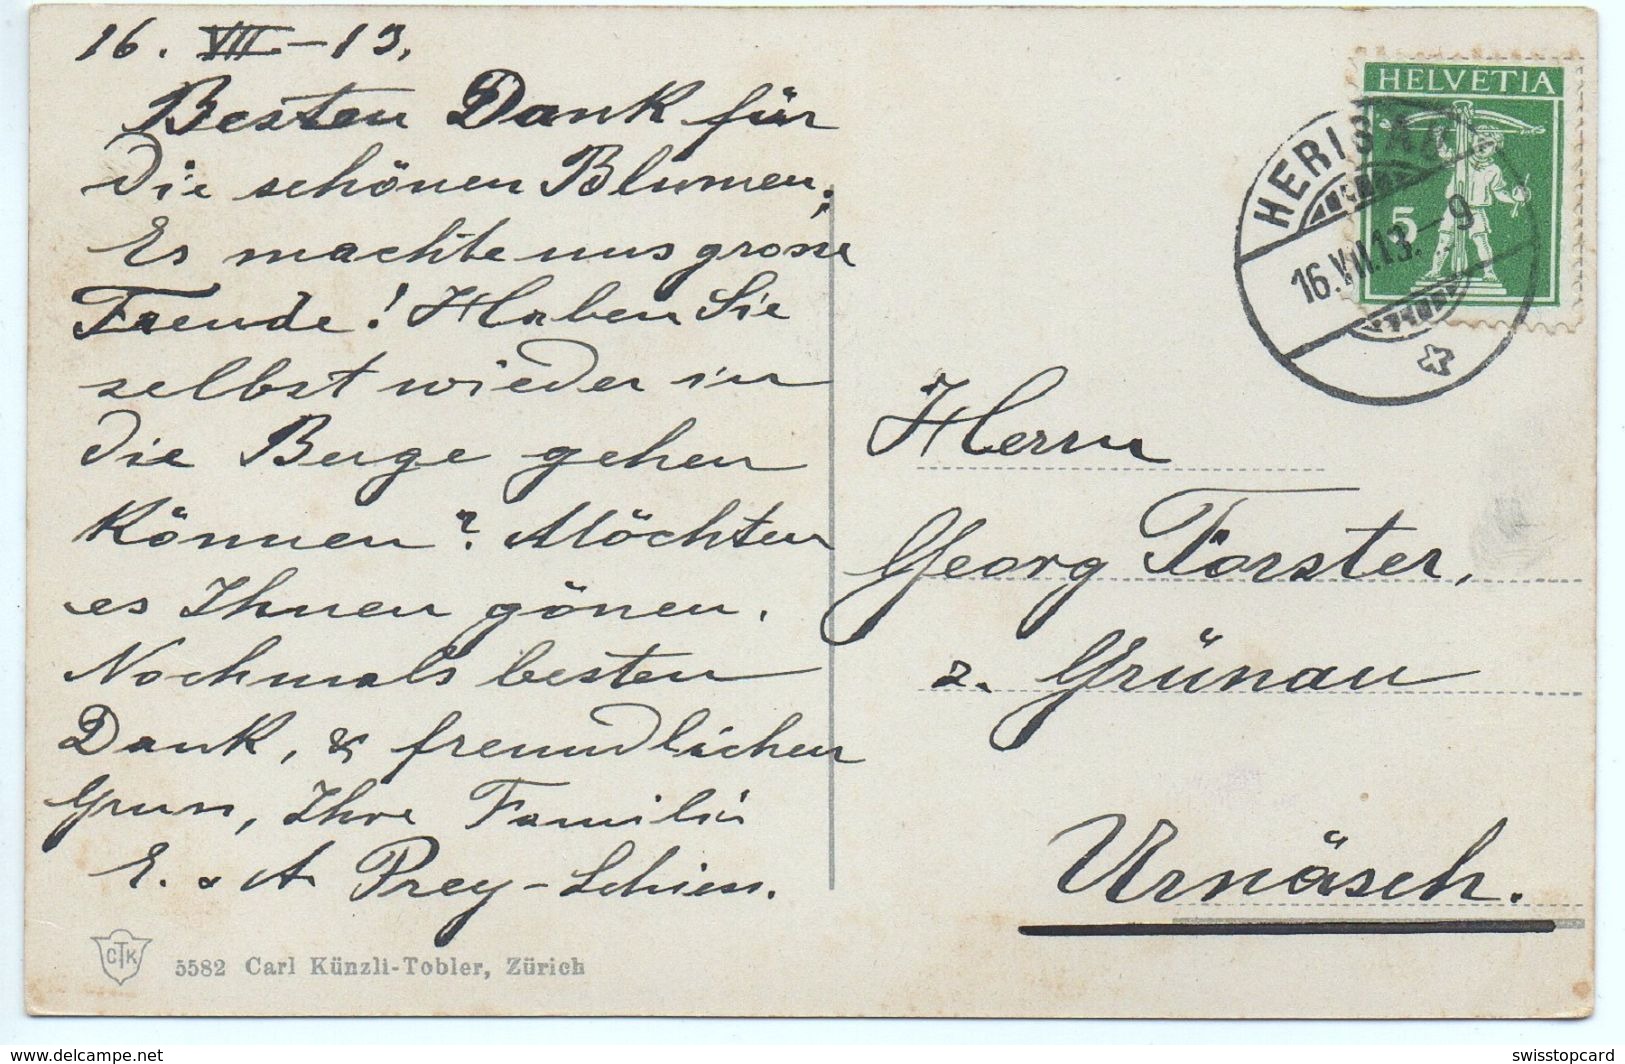 16. VII. – 13.
Besten Dank für
die schönen Blumen.
Es machte uns grosse
Freude! Haben Sie
selbst wieder in
die Berge gehen
können? Möchten
es Ihnen gönen.
Nochmals besten
Dank, & freundlichen
Gruss, Ihre Familie
E. & A Prey-Schiess.
5582 Carl Künzli-Tobler, Zürich
CTK
HELVETIA
5
HERISAU
16.VII.13.–9
Herrn
Georg Forster,
z. Grünau
Urnäsch.
swisstopcard